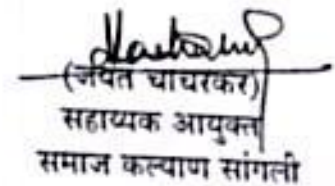 (जयंत चाचरकर)
सहाय्यक आयुक्त
समाज कल्याण सांगली